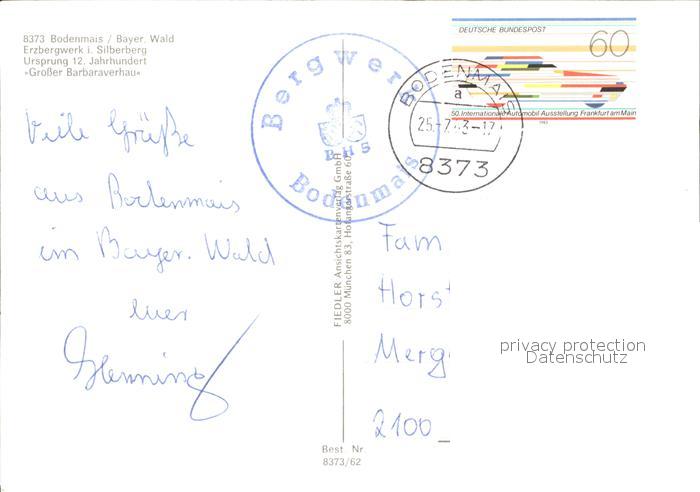 8373 Bodenmais / Bayer. Wald
Erzbergwerk i. Silberberg
Ursprung 12. Jahrhundert
»Großer Barbaraverhau«
Viele Grüße
aus Bodenmais
im Bayer. Wald
euer
Henning
Bergwerk
BHS
Bodenmais
DEUTSCHE BUNDESPOST
60
50. Internationale Automobil Ausstellung Frankfurt am Main
1983
BODENMAIS
a
25.-7.83-17
8373
FIEDLER Ansichtskartenverlag GmbH
8000 München 83, Hofangerstraße 60
Fam
Horst
Merg
2100
privacy protection
Datenschutz
Best. Nr.
8373/62